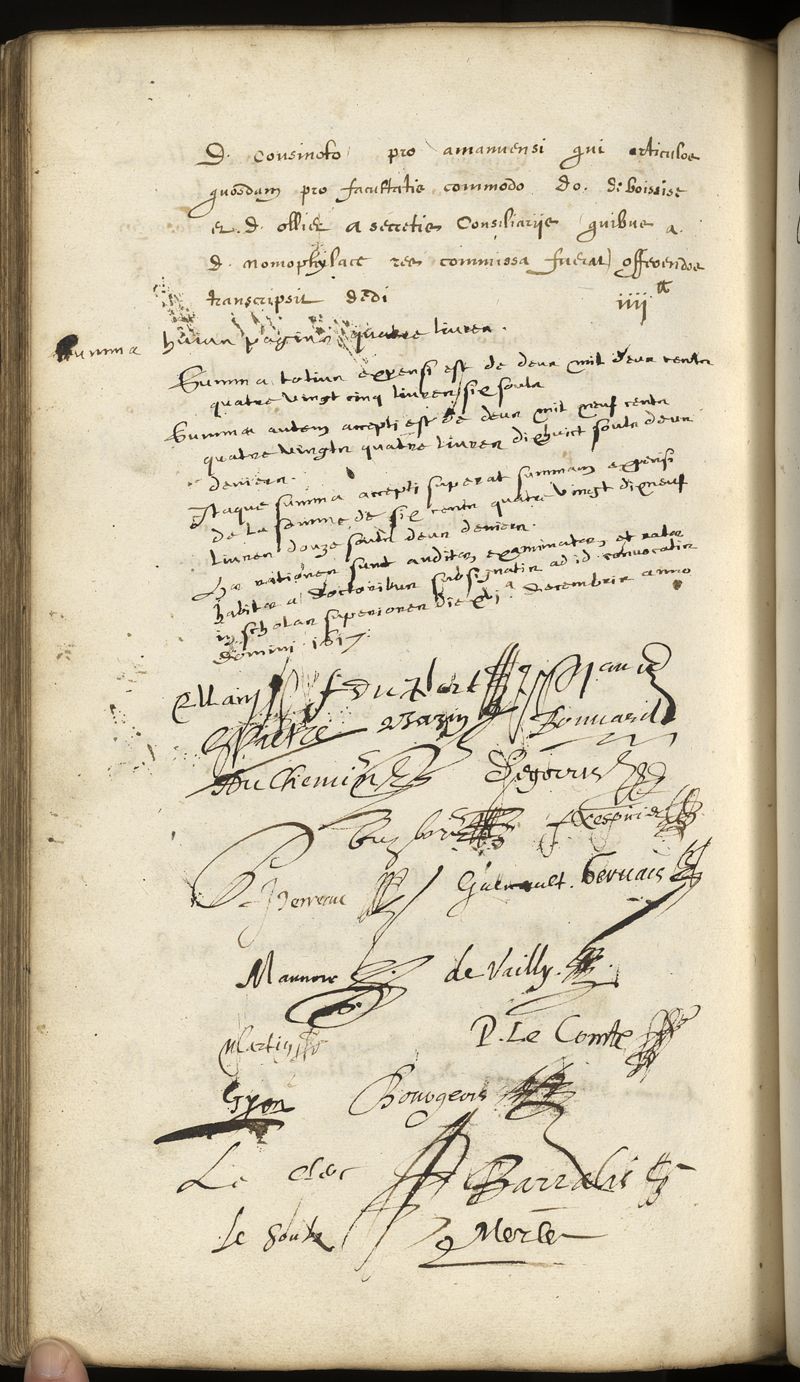 D. Cousinoto pro amanuensi qui articulos
quosdam pro facultatis commodo do. de boissise
et. d. ollier a secretis Consiliariis quibus a
d. nomophylace res commissa fuerat offerendos
transcripsit dedi iiii lt
Summa huius paginæ quatre livres.
Summa totius expensi est de deux mil deux cents
quatre vingt cinq livres six souls
Summa autem accepti est de deux mil neuf cents
quatre vingts quatre livres dixhuict souls deux
deniers.
Itaque summa accepti superat summam expensi
de la somme de six cents quatre vingt dixneuf
livres douze souls deux deniers.
Hæ rationes sunt auditæ examinatæ et ratæ
habitæ a doctoribus subsignatis ad id convocatis
in scholas superiores die xvi a decembris anno
domini 1617.
ellain
Pietre Bazin Bouvard
Du Chemin Pegorris
Perreau Guenault. Gervais
Maunoir de Vailly.
Martin P. Le Comte
Gyon Bourgeois
Le clerc Barralis
le soubz Merlet